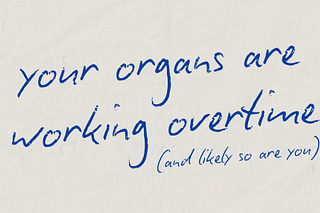 your organs are
working overtime
(and likely so are you)